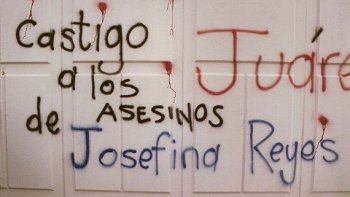 Castigo
a los
de ASESINOS
Josefina Reyes
Juáre